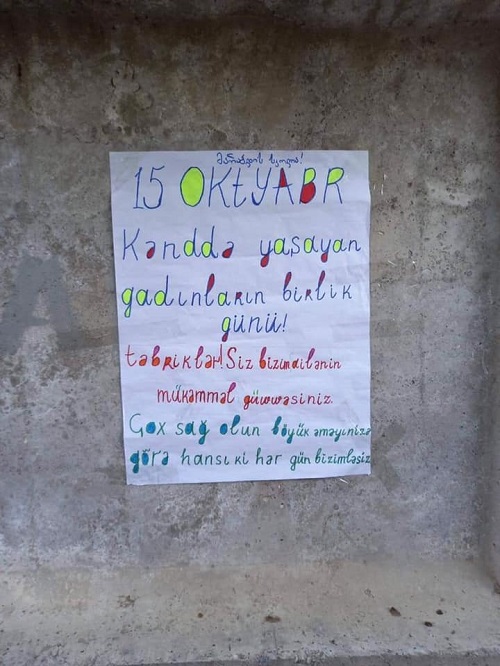 სკოლა!
15 OKtYABR
Kənddə yaşayan
gadınların birlik
günü!
təbriklər! Siz bizimailənin
mükəmməl güwwəsiniz.
Çox sağ olun böyük əməyinizə
görə hansı ki hər gün bizimləsiz